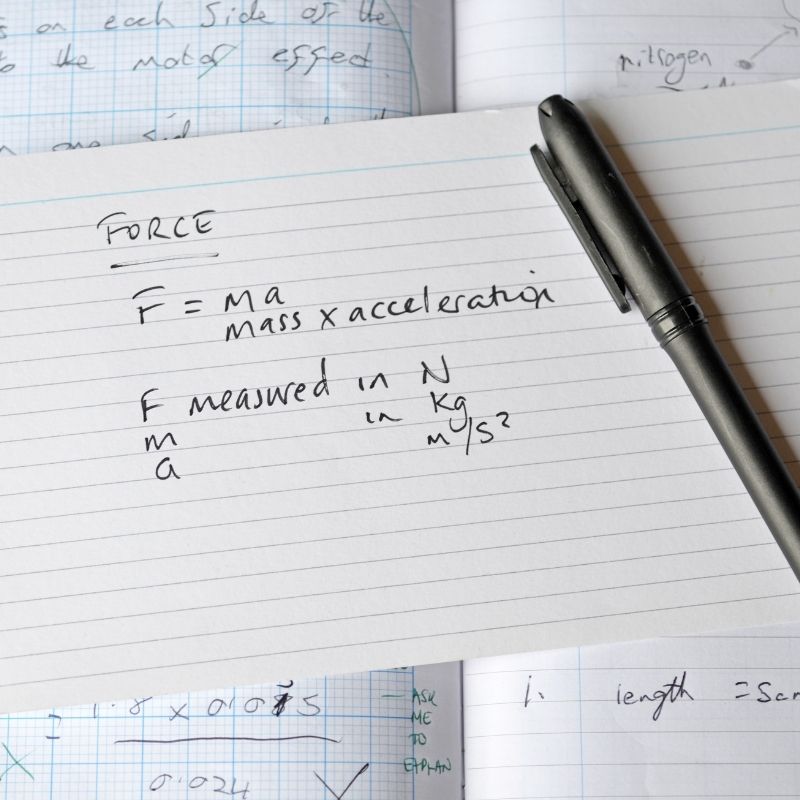 on each side of the
the motor effect.
nitrogen
FORCE
F = ma
mass x acceleration
F measured in N
m in kg
a m/s²
ASK
ME
TO
EXPLAIN
1. length =
0.024